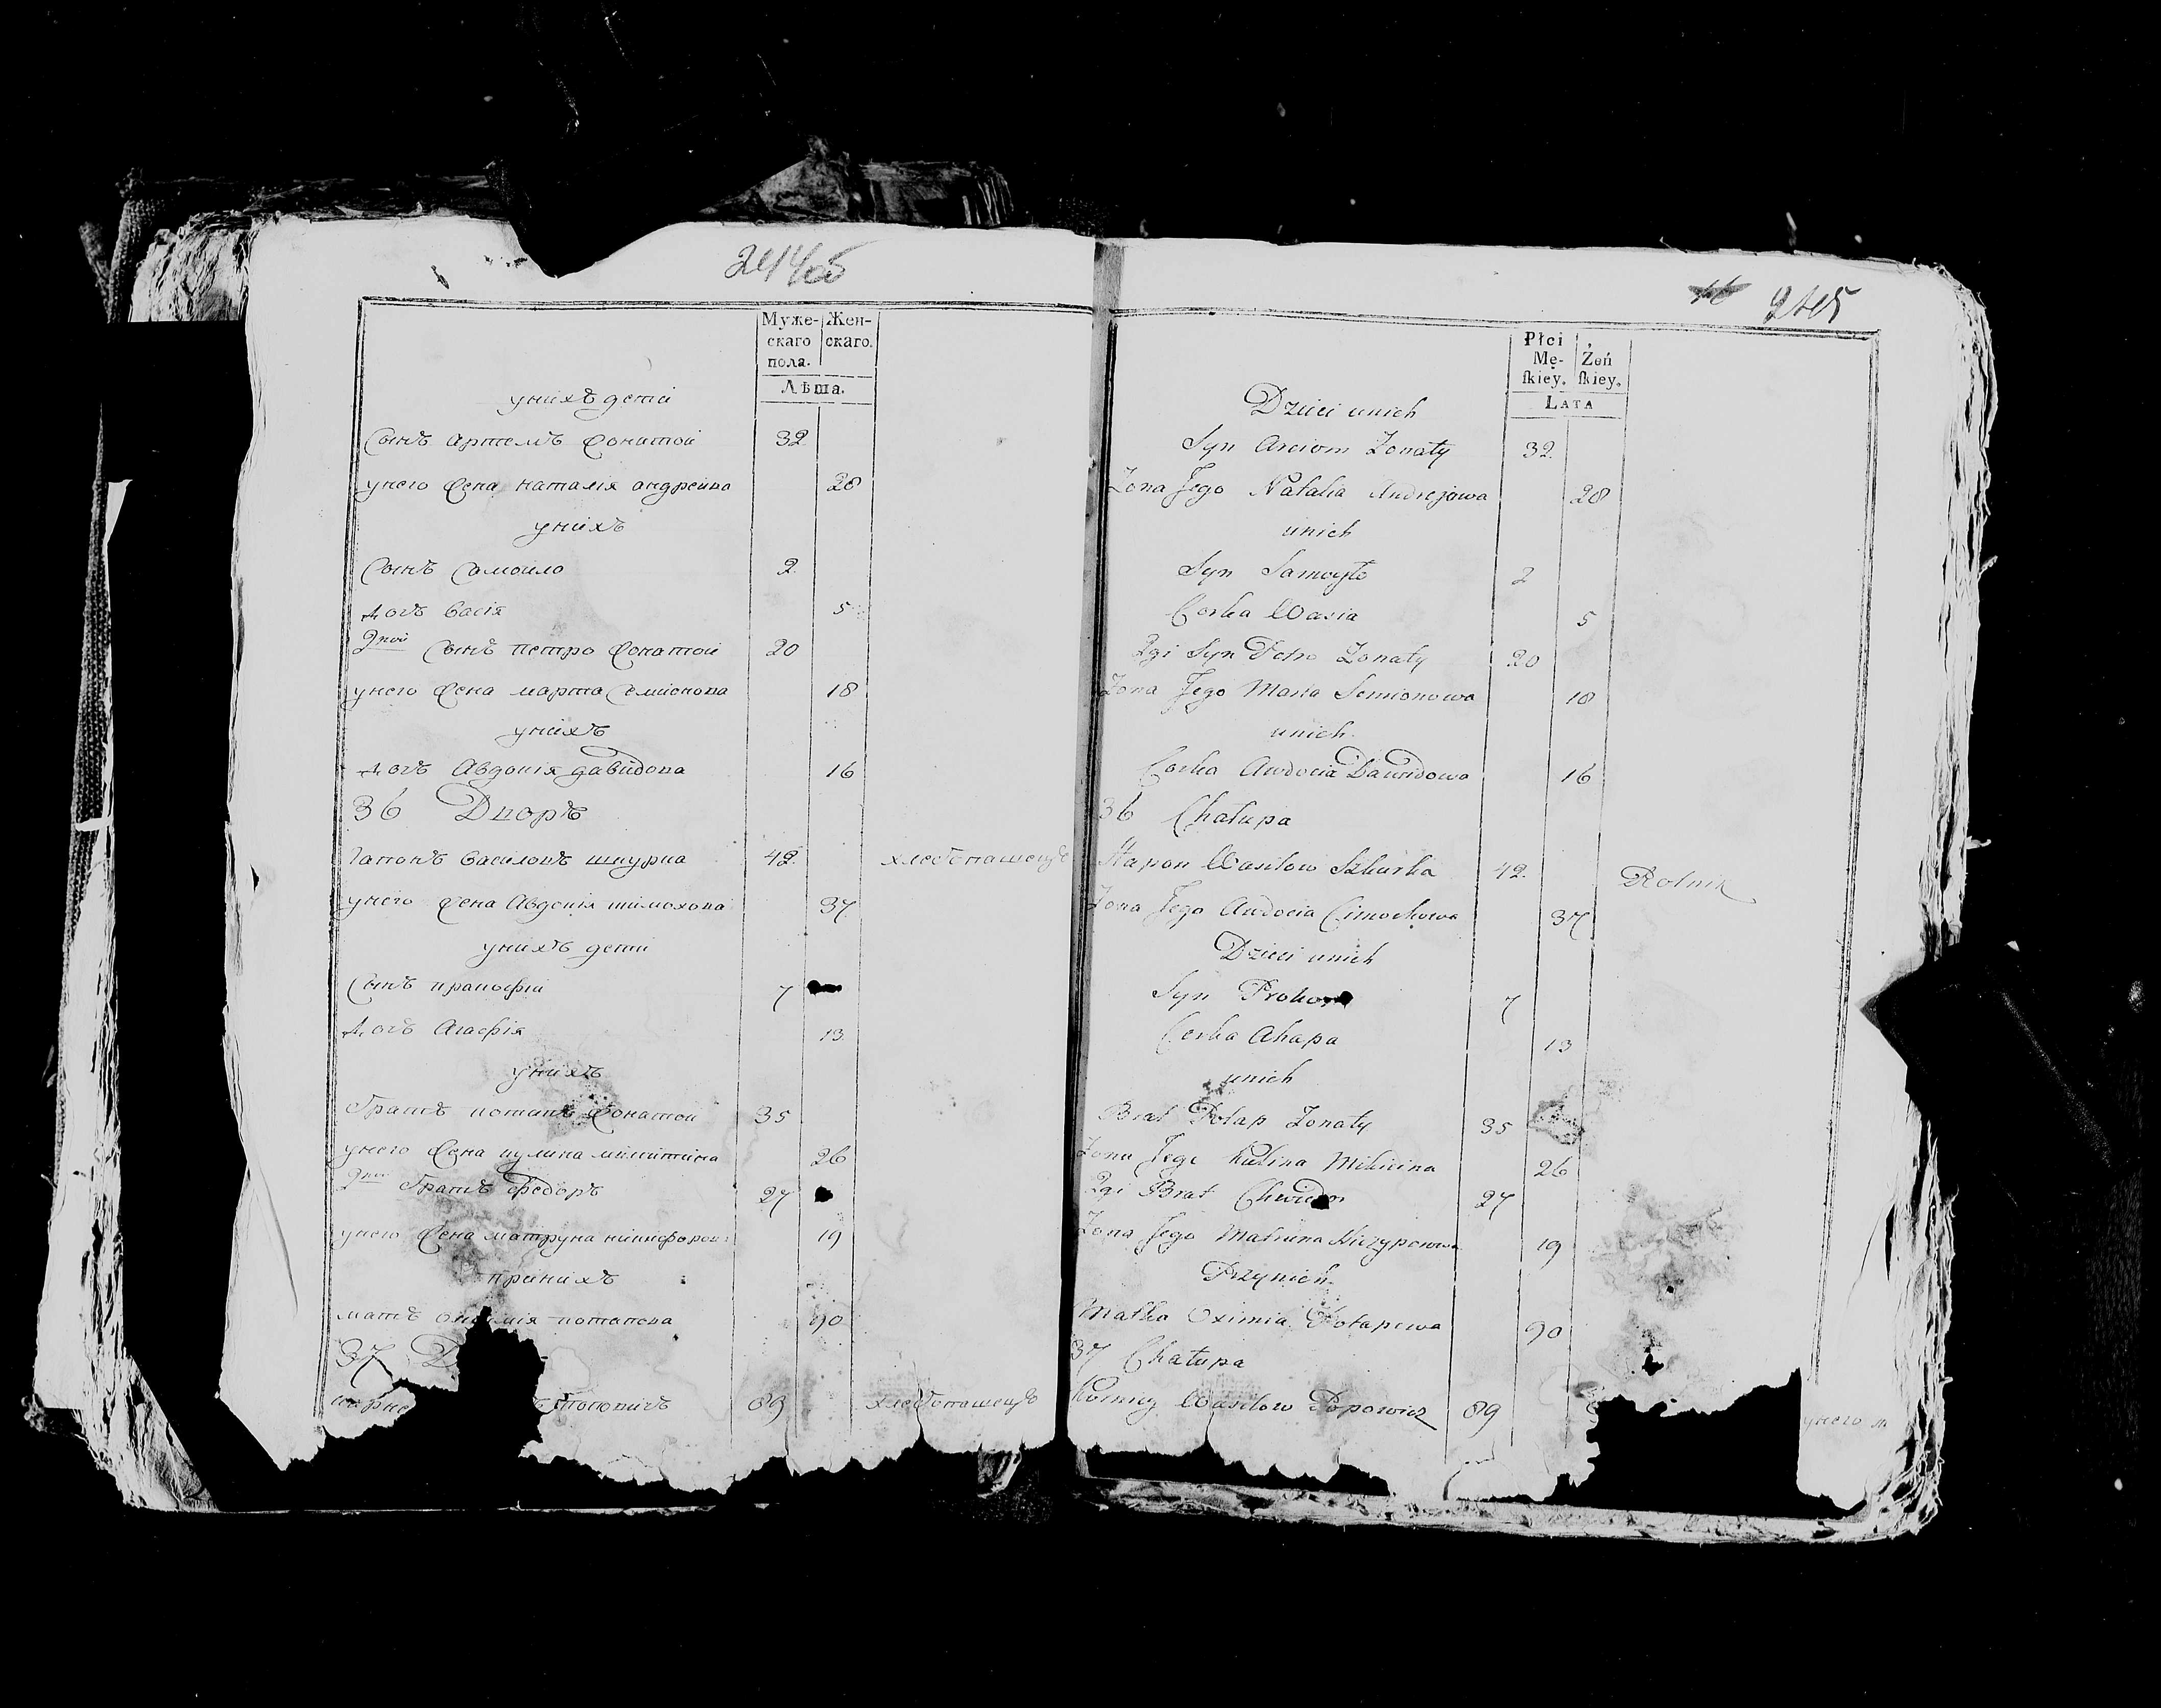 244об
Муже- Жен-
скаго скаго.
пола.
Лѣта.
унихъ дети
Сынъ Артемъ Жонатой 32
унего Жена наталія андреива 28
унихъ
Сынъ Самоило 2
дочъ Васія 5
2гой Сынъ петро Жонатой 20
унего Жена марта Семионова 18
унихъ
дочъ Авдокія давидова 16
36 Дворъ
Гапонъ Василовъ шкурка 42 хлебопашецъ
унего Жена Авдокія тимохова 37
унихъ дети
Сынъ 7
дочъ Агафія 13
унихъ
братъ потапъ Жонатой 35
унего Жена кулина микитина 26
2гой братъ Федоръ 27
унего Жена матруна никифоров 19
принихъ
матъ потапова 90
37 Д
поповичъ 89 хлебопашецъ
245
Płci
Mę- Żeń
ſkiey. ſkiey.
LATA
Dzieci unich
Syn Arciom Żonaty 32
Żona Jego Natalia Andrejowa 28
unich
Syn Samoyło 2
Corka Wasia 5
2gi Syn Petro Żonaty 20
Żona Jego Marta Semionowa 18
unich
Corka Awdocia Dawidowa 16
36 Chałupa
Hapon Wasilow Szkurka 42 Rolnik
Żona Jego Awdocia Cimochowa 37
Dzieci unich
Syn Prokop 7
Corka Ahapa 13
unich
Brat Potap Żonaty 35
Żona Jego Kulina Mikicina 26
2gi Brat Chwiedor 27
Żona Jego Matruna Niczyporowa 19
Przynich
Matka Oximia Potapowa 90
37 Chałupa
Korniey Wasilow Popowicz 89
унего